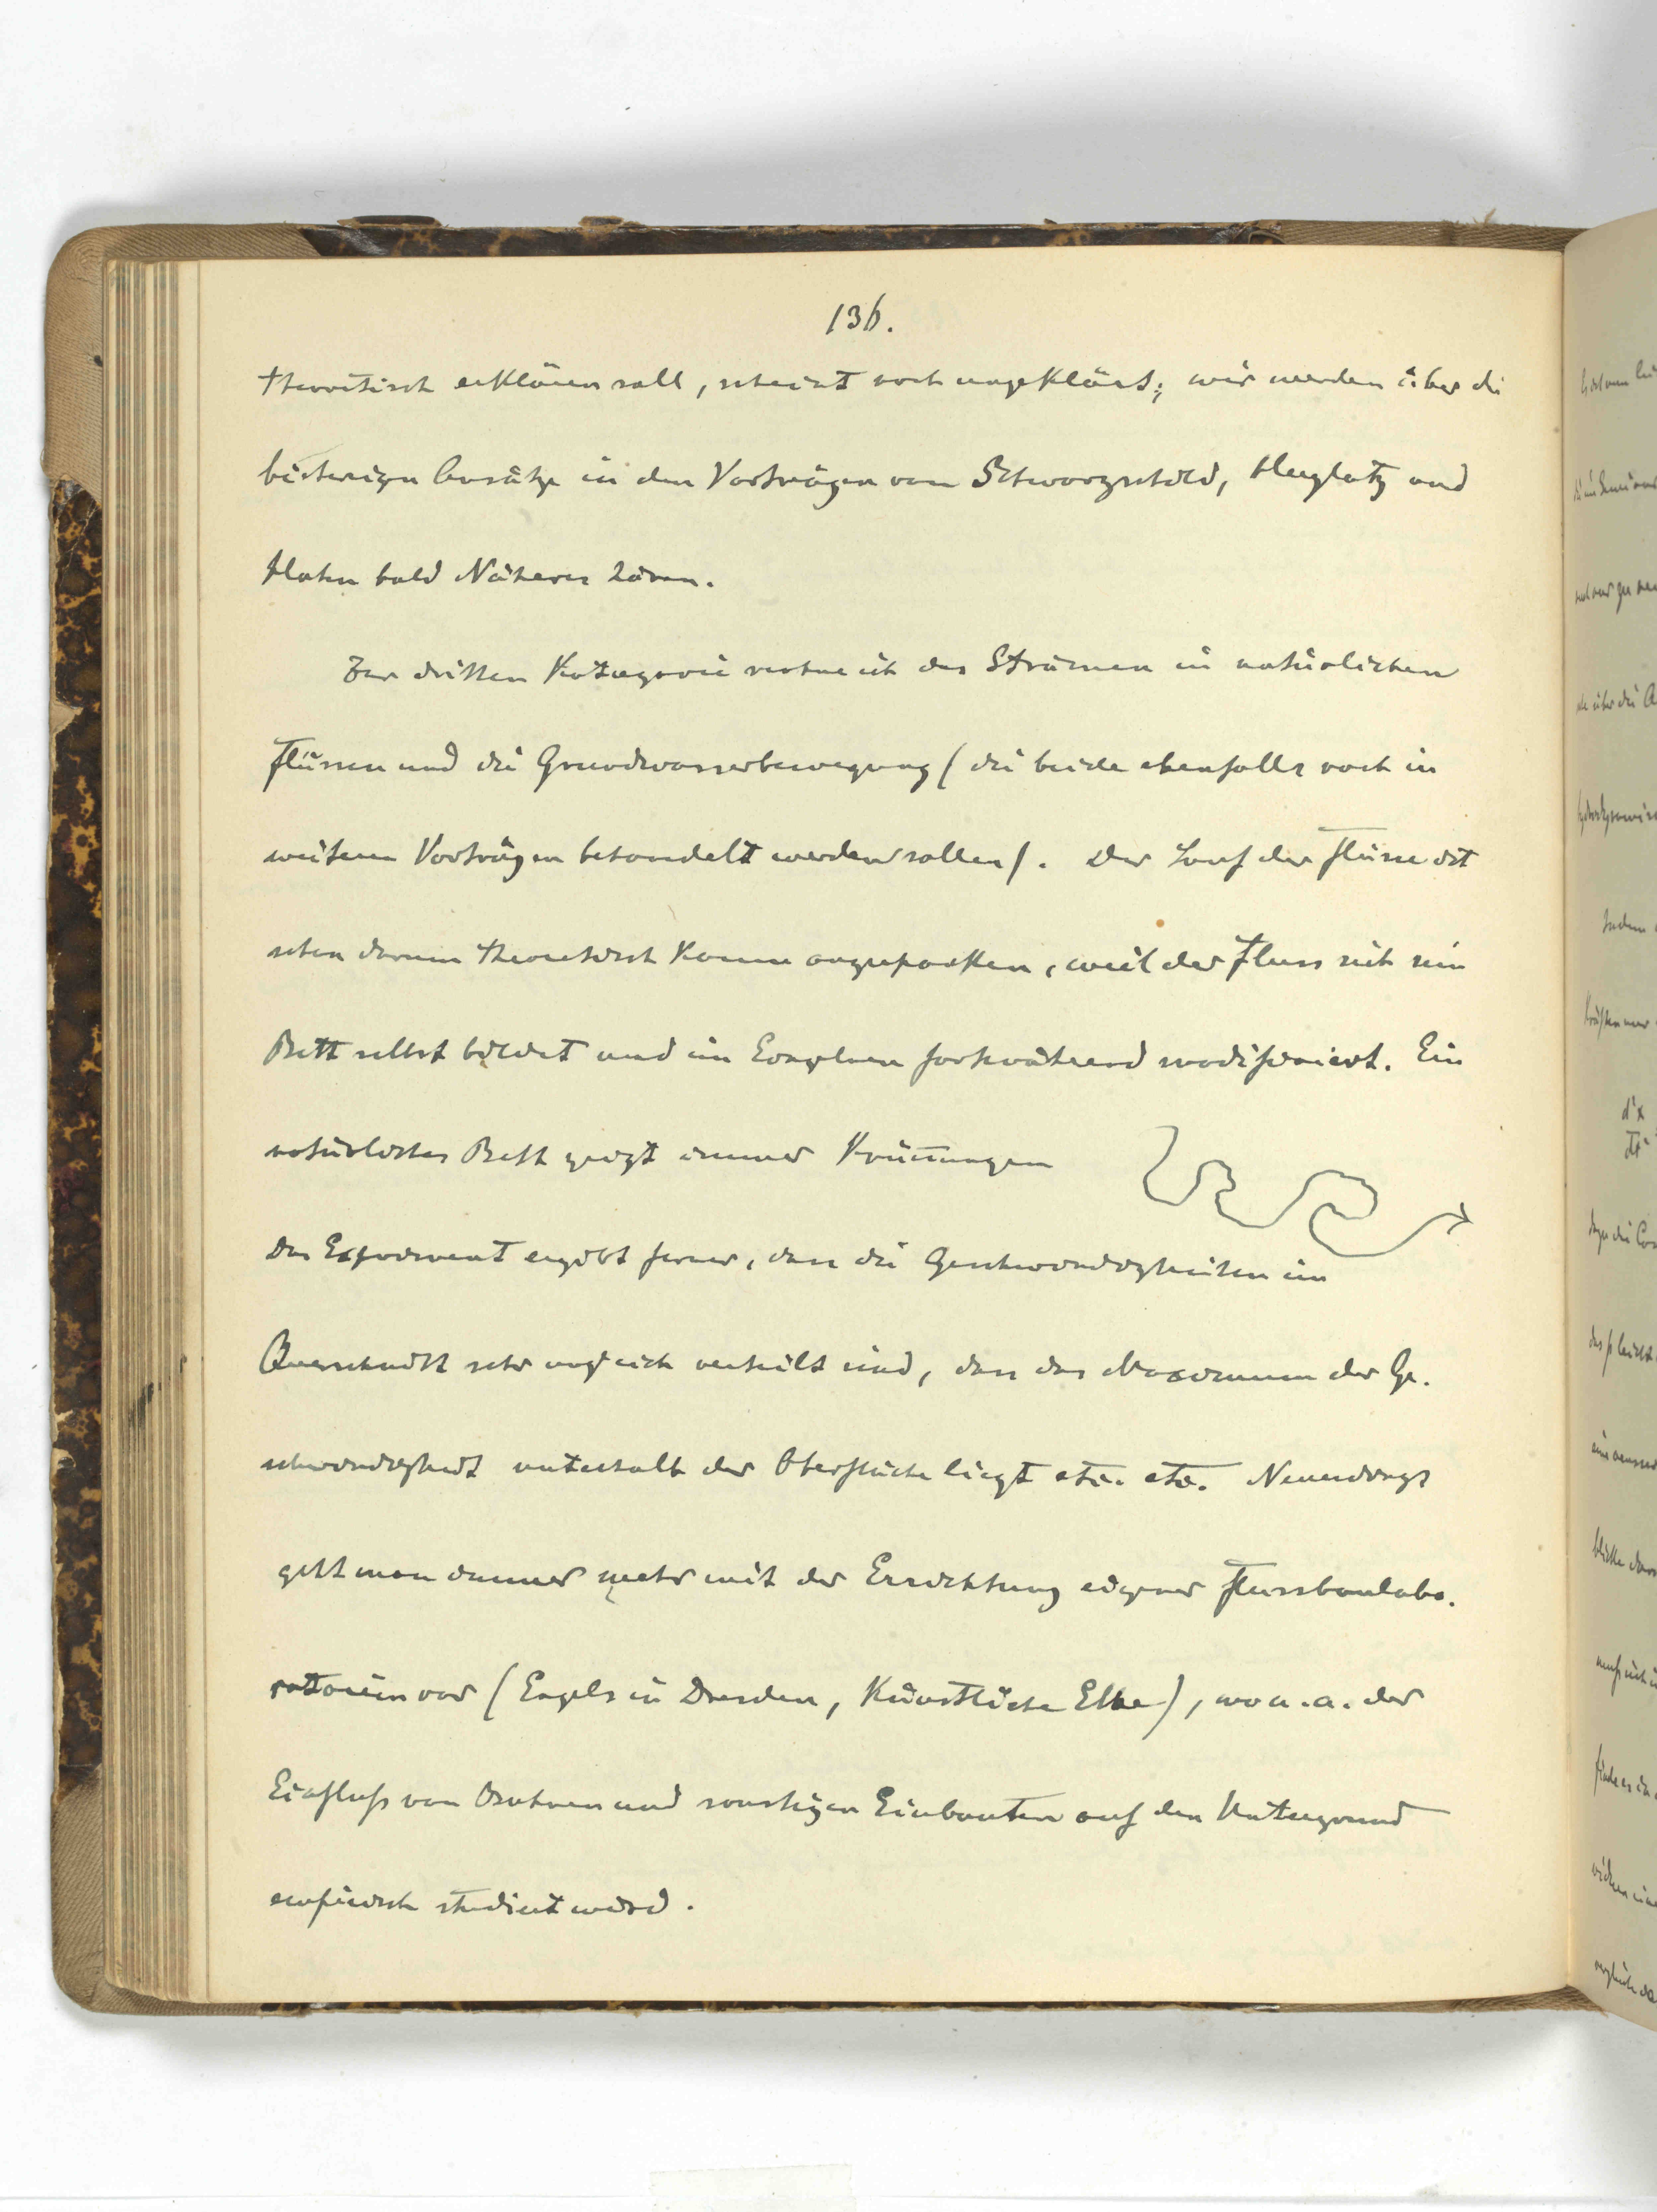 136.
theoretisch erklären soll, scheint noch ungeklärt; wir werden über die
bisherigen Ansätze in den Vorträgen von Schwarzschild, Herglotz und
Hahn bald Näheres hören.
Zur dritten Kategorie rechne ich das Strömen in natürlichen
Flüssen und die Grundwasserbewegung (die beide ebenfalls noch in
weiteren Vorträgen behandelt werden sollen). Der Lauf der Flüsse ist
schon darum theoretisch kaum anzupacken, weil der Fluss sich sein
Bett selbst bildet und im Einzelnen fortwährend modificiert. Ein
natürliches Bett zeigt immer Krümmungen
Das Experiment ergibt ferner, dass die Geschwindigkeiten im
Querschnitt sehr ungleich verteilt sind, dass das Maximum der Ge-
schwindigkeit unterhalb der Oberfläche liegt etc. etc. Neuerdings
geht man immer mehr mit der Errichtung eigener Flussbaulabo-
ratorien vor (Engels in Dresden, Künstliche Elbe), wo u. a. der
Einfluß von Buhnen und sonstigen Einbauten auf den Untergrund
empirisch studiert wird.